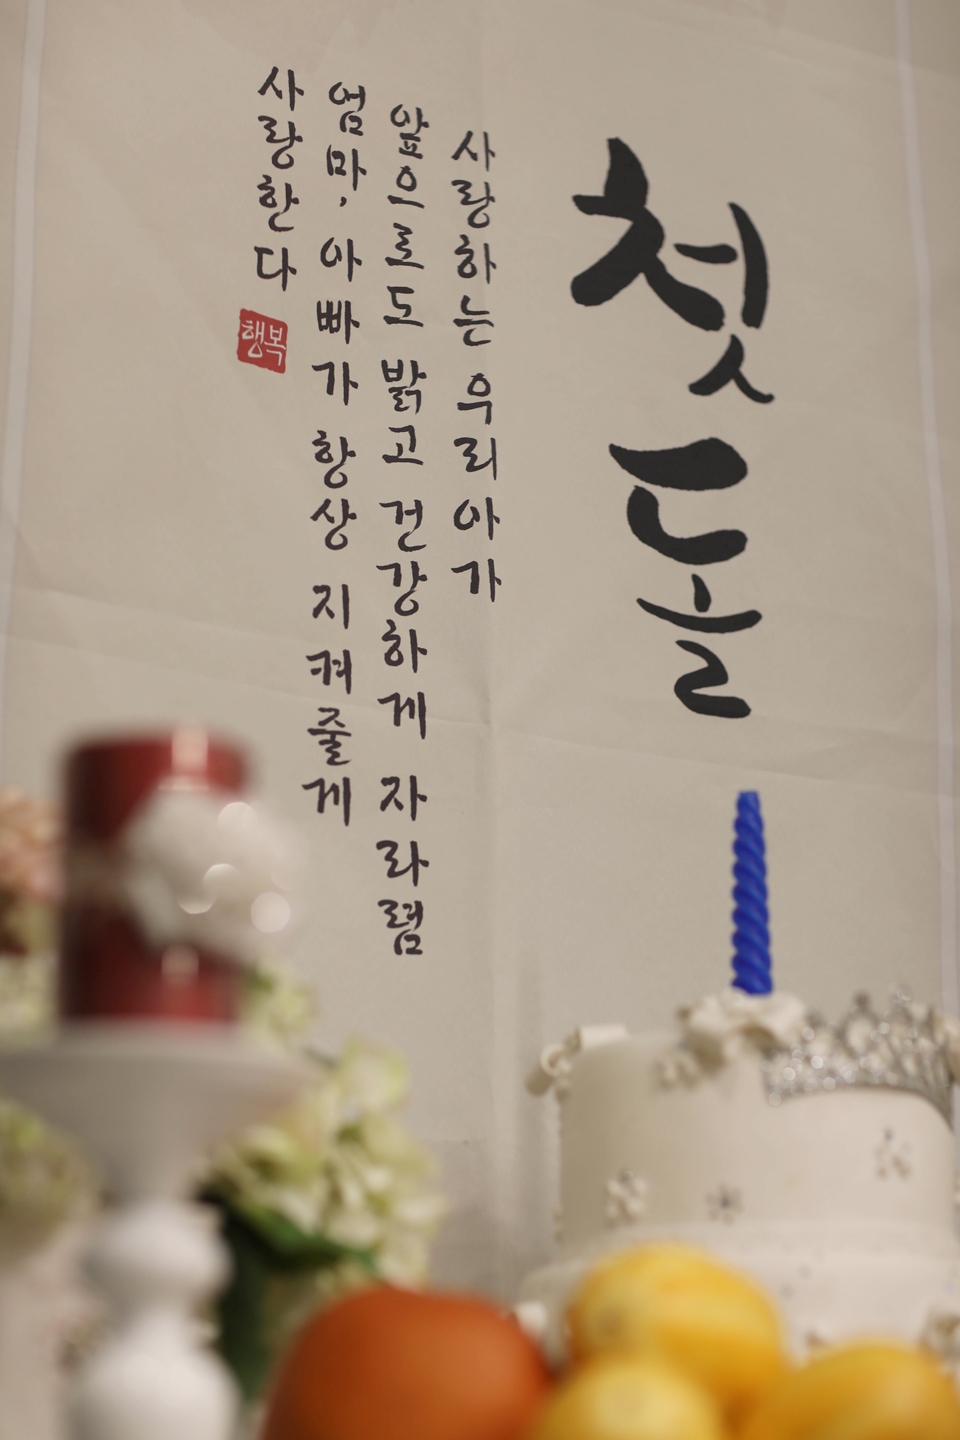 첫돌
사랑하는 우리아가
앞으로도 밝고 건강하게 자라렴
엄마, 아빠가 항상 지켜줄게
사랑한다
행복